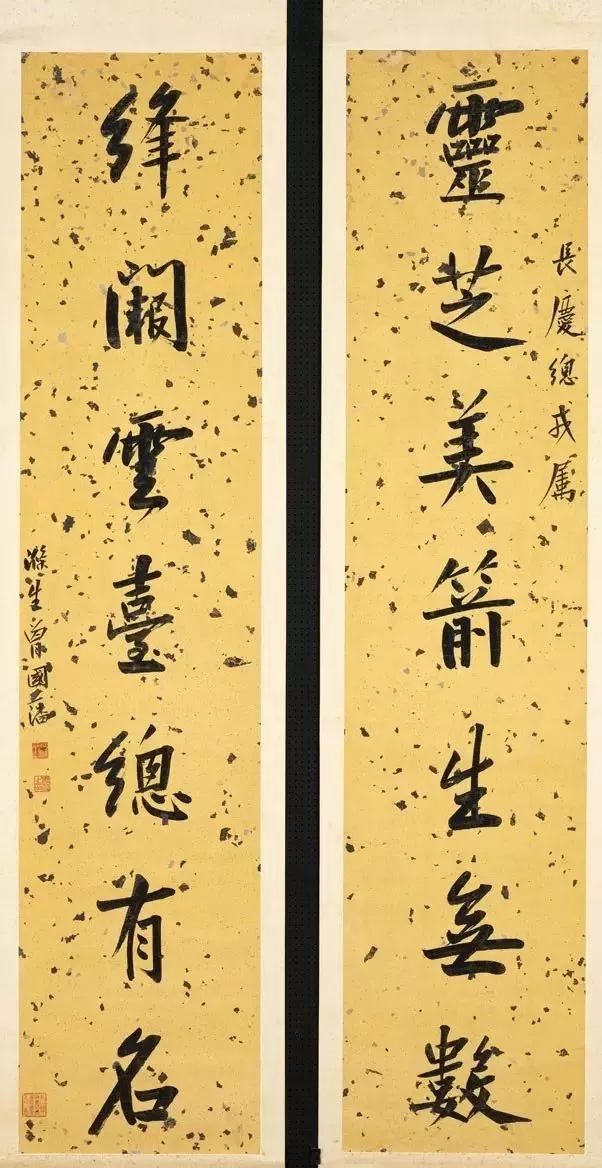 長慶總戎屬
靈芝美箭生無數
絳闕雲臺總有名
滌生曾國藩